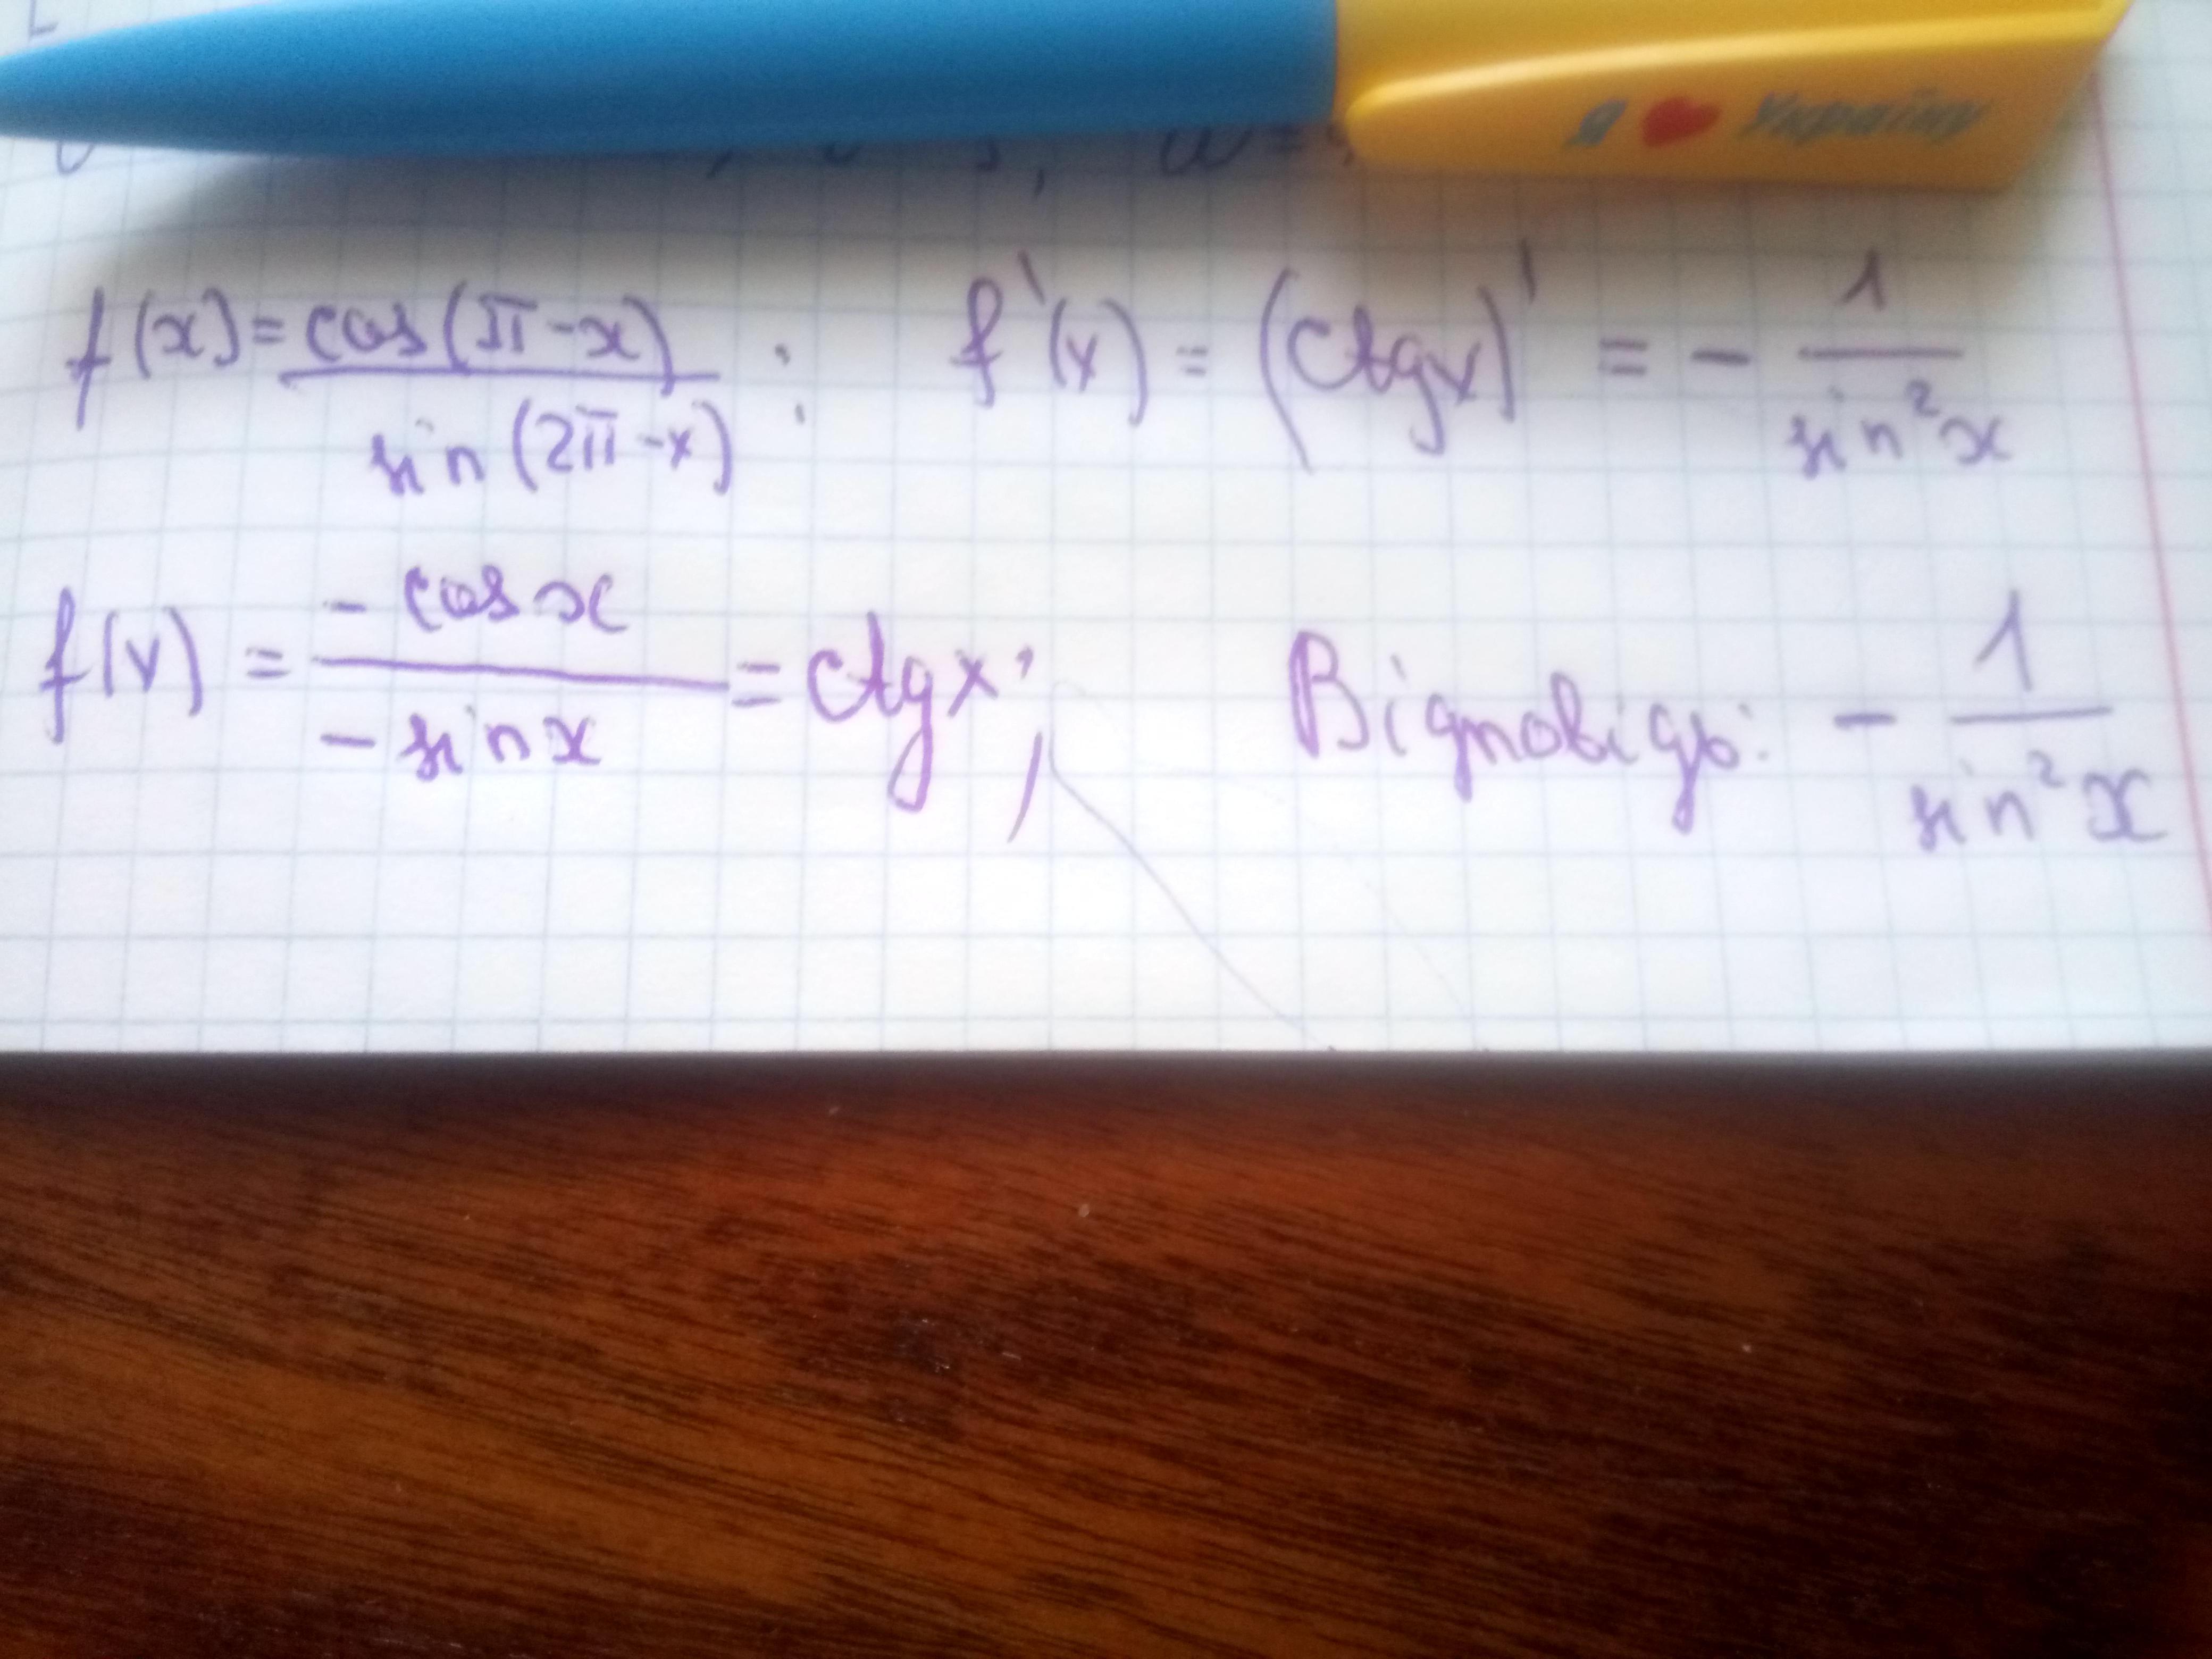 Я ❤ Україну
f(x) = cos(π-x) / sin(2π-x) ; f'(x) = (ctgx)' = - 1 / sin²x
f(x) = -cos x / -sin x = ctgx; Відповідь: - 1 / sin²x